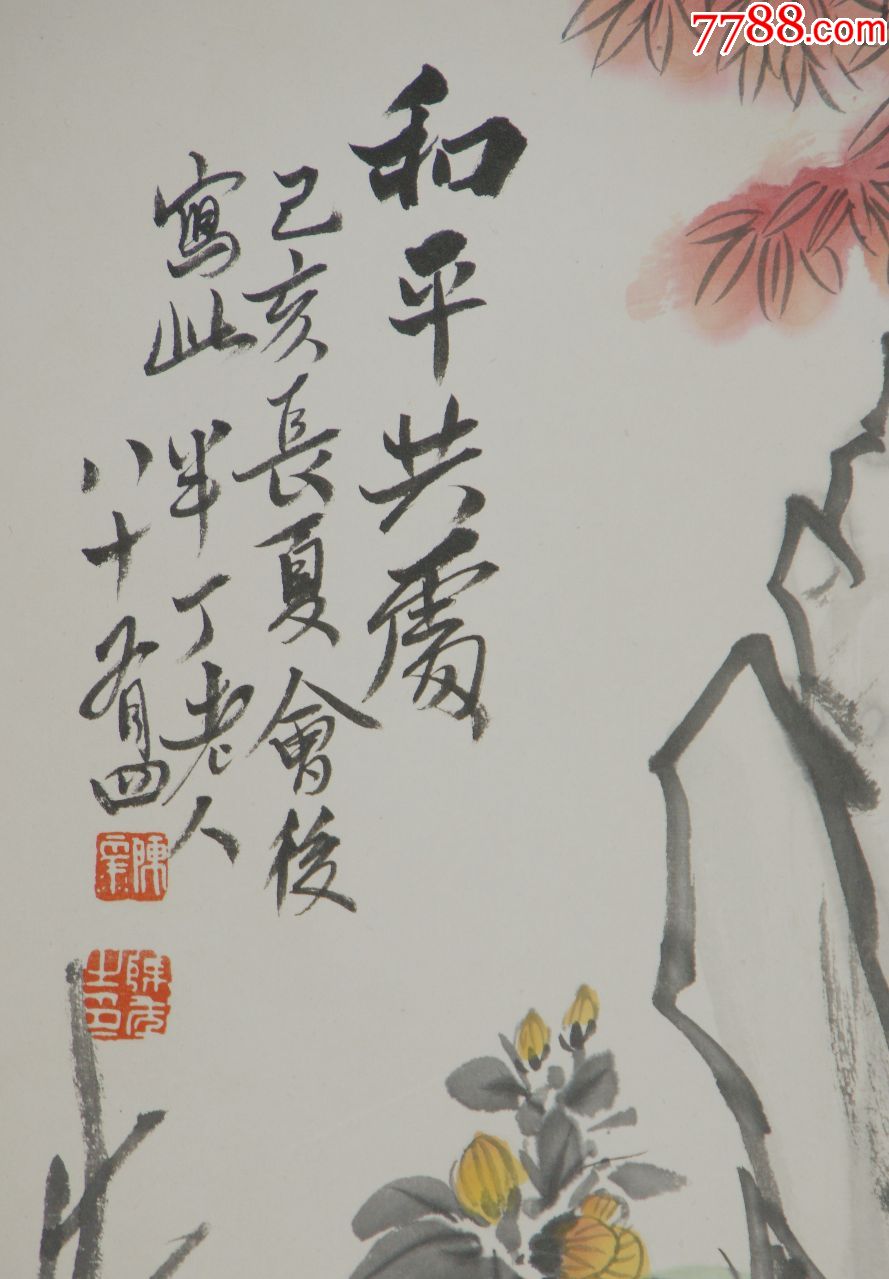 7788.com
和平共處
己亥長夏會後
寫此 半丁老人
八十又有四
陳年